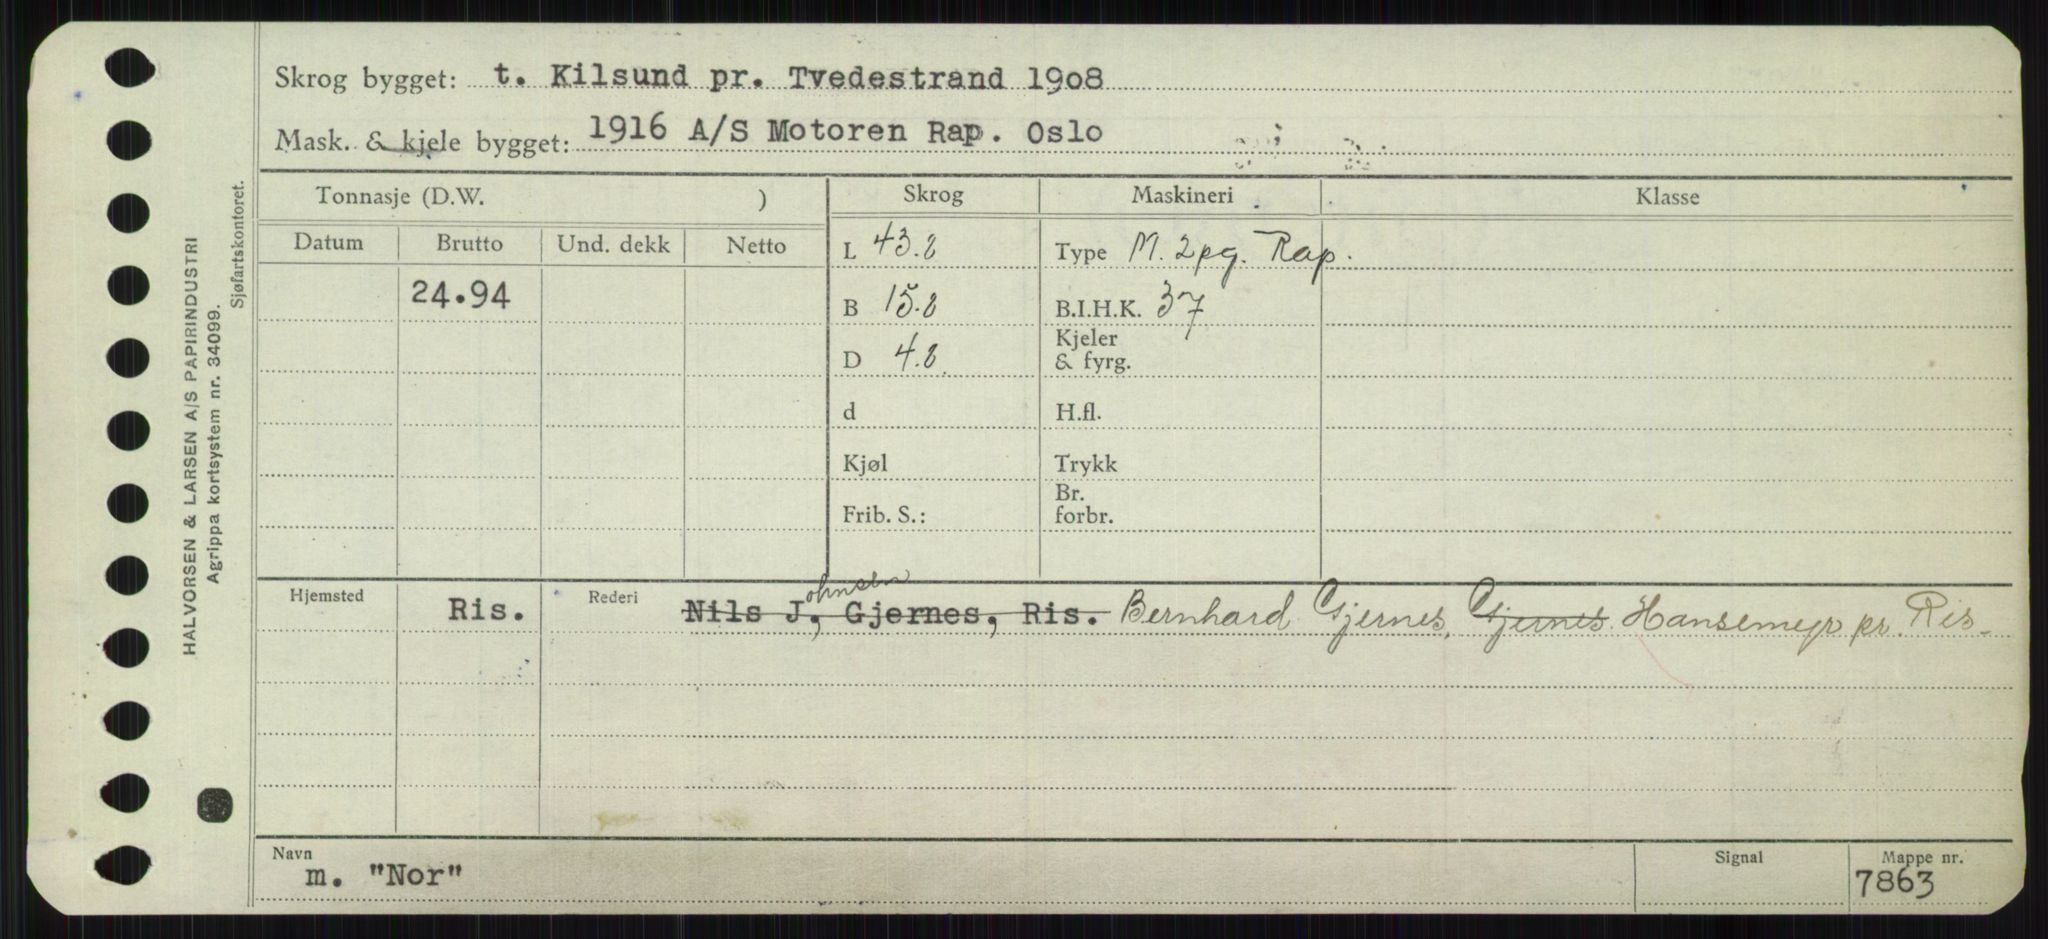 Skrog bygget: t. Kilsund pr. Tvedestrand 1908
Mask. & kjele bygget: 1916 A/S Motoren Rap. Oslo
Tonnasje (D.W. ) Skrog Maskineri Klasse
Datum Brutto Und. dekk Netto
L 43.8 Type M. 2pg. Rap.
24.94 B 15.8 B.I.H.K. 37
D 4.8 Kjeler & fyrg.
d H.fl.
Kjøl Trykk
Frib. S.: Br. forbr.
Hjemsted Ris. Rederi Nils J, Gjernes, Ris. Bernhard Gjernes, Gjernes. Hansemyr pr. Ris.
ohnsen
Navn m. "Nor" Signal Mappe nr. 7863
HALVORSEN & LARSEN A/S PAPIRINDUSTRI
Agrippa kortsystem nr. 34099.
Sjøfartskontoret.